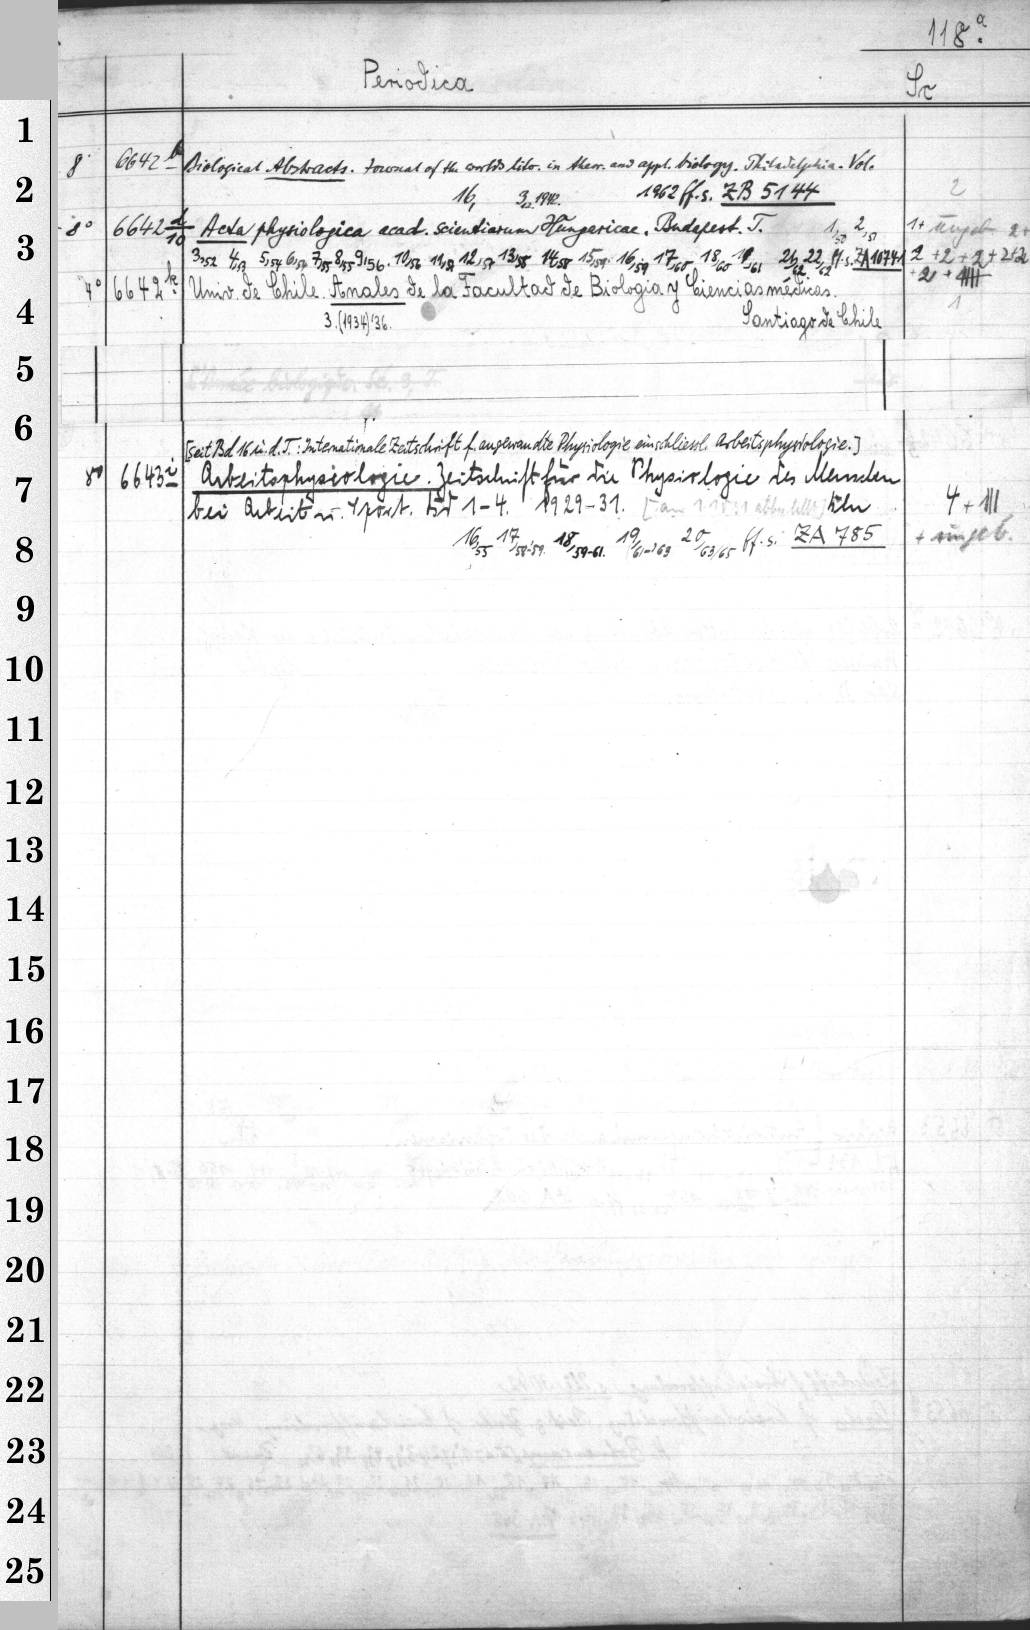 118a.
Periodica
Sr
1
8° 6642 b Biological Abstracts. Journal of the world's liter. in theor. and appl. biology. Philadelphia. Vol.
2 16, 3, 1942. 1962 ff. s. ZB 5144 2
8° 6642 d/10 Acta physiologica acad. scientiarum Hungaricae. Budapest. T. 1,50 2,51 1 + ungeb 2+
3 3,52 4,53 5,54 6,54 7,55 8,55 9,56. 10/56 11,57 12,57 13/58 14/58 15,59. 16/59 17/60 18/60 19/61 21/62. 22/62 ff. s. ZA 10741 2 + 2 + 2 + 2+2
+ 2 +
4° 6642 k Univ. de Chile. Anales de la Facultad de Biologia y Ciencias médicas. 1
4 3. (1934) '36. Santiago de Chile
5
6
[seit Bd 16 u. d. T.: Internationale Zeitschrift f. angewandte Physiologie einschliessl. Arbeitsphysiologie.]
7 8° 6643 i Arbeitsphysiologie. Zeitschrift für die Physiologie des Menschen
bei Arbeit u. Sport. Bd 1-4. 1929-31. 4 + III
8 16/55 17/58-59. 18/59-61. 19/61-63 20/63/65 ff. s. ZA 785 + ungeb.
9
10
11
12
13
14
15
16
17
18
19
20
21
22
23
24
25